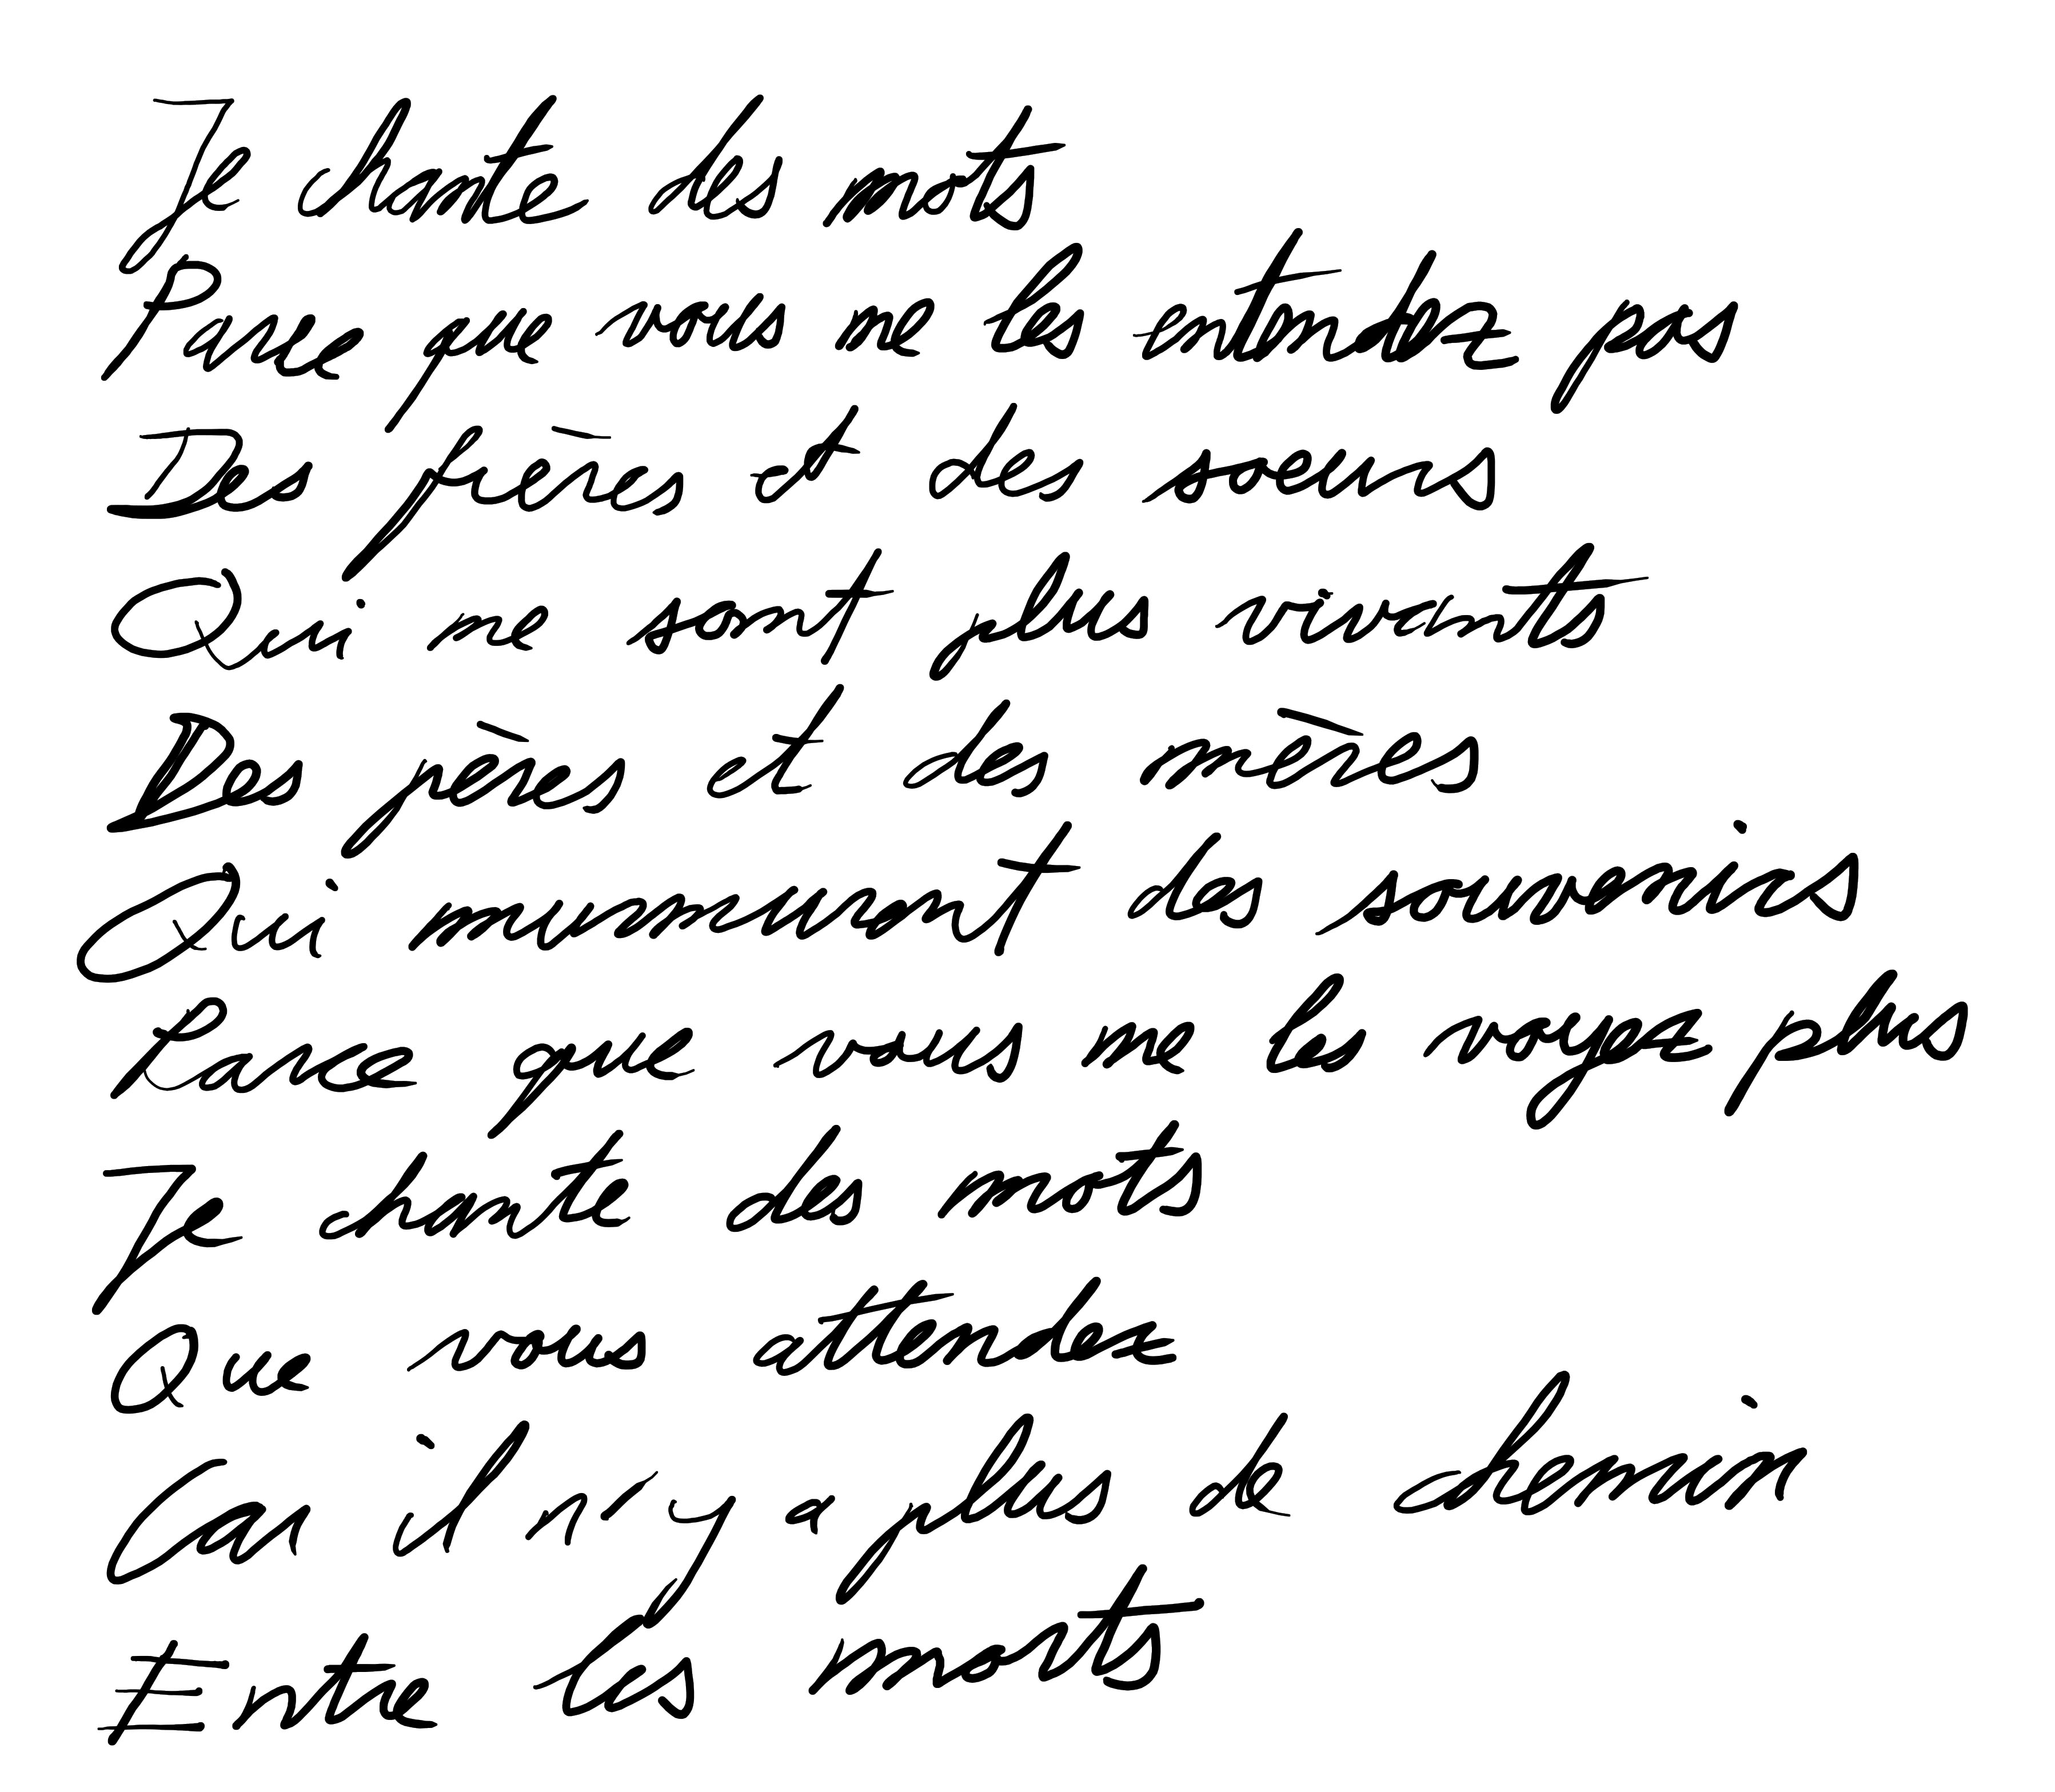 Je chante des mots
Parce que vous ne les entendez pas
Des frères et des soeurs
Qui ne sont plus vivants
Des pères et des mères
Qui murmurent des souvenirs
Parce que vous ne les voyez plus
Je chante des mots
Que vous attendez
Car il n'y a plus de demain
Entre les mots